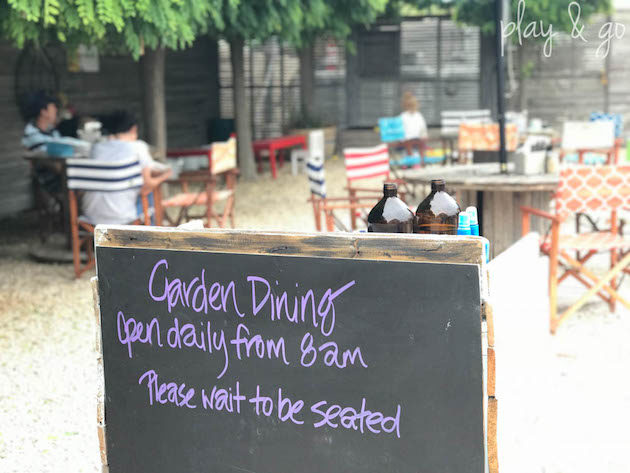 play & go
Garden Dining
Open daily from 8am
Please wait to be seated